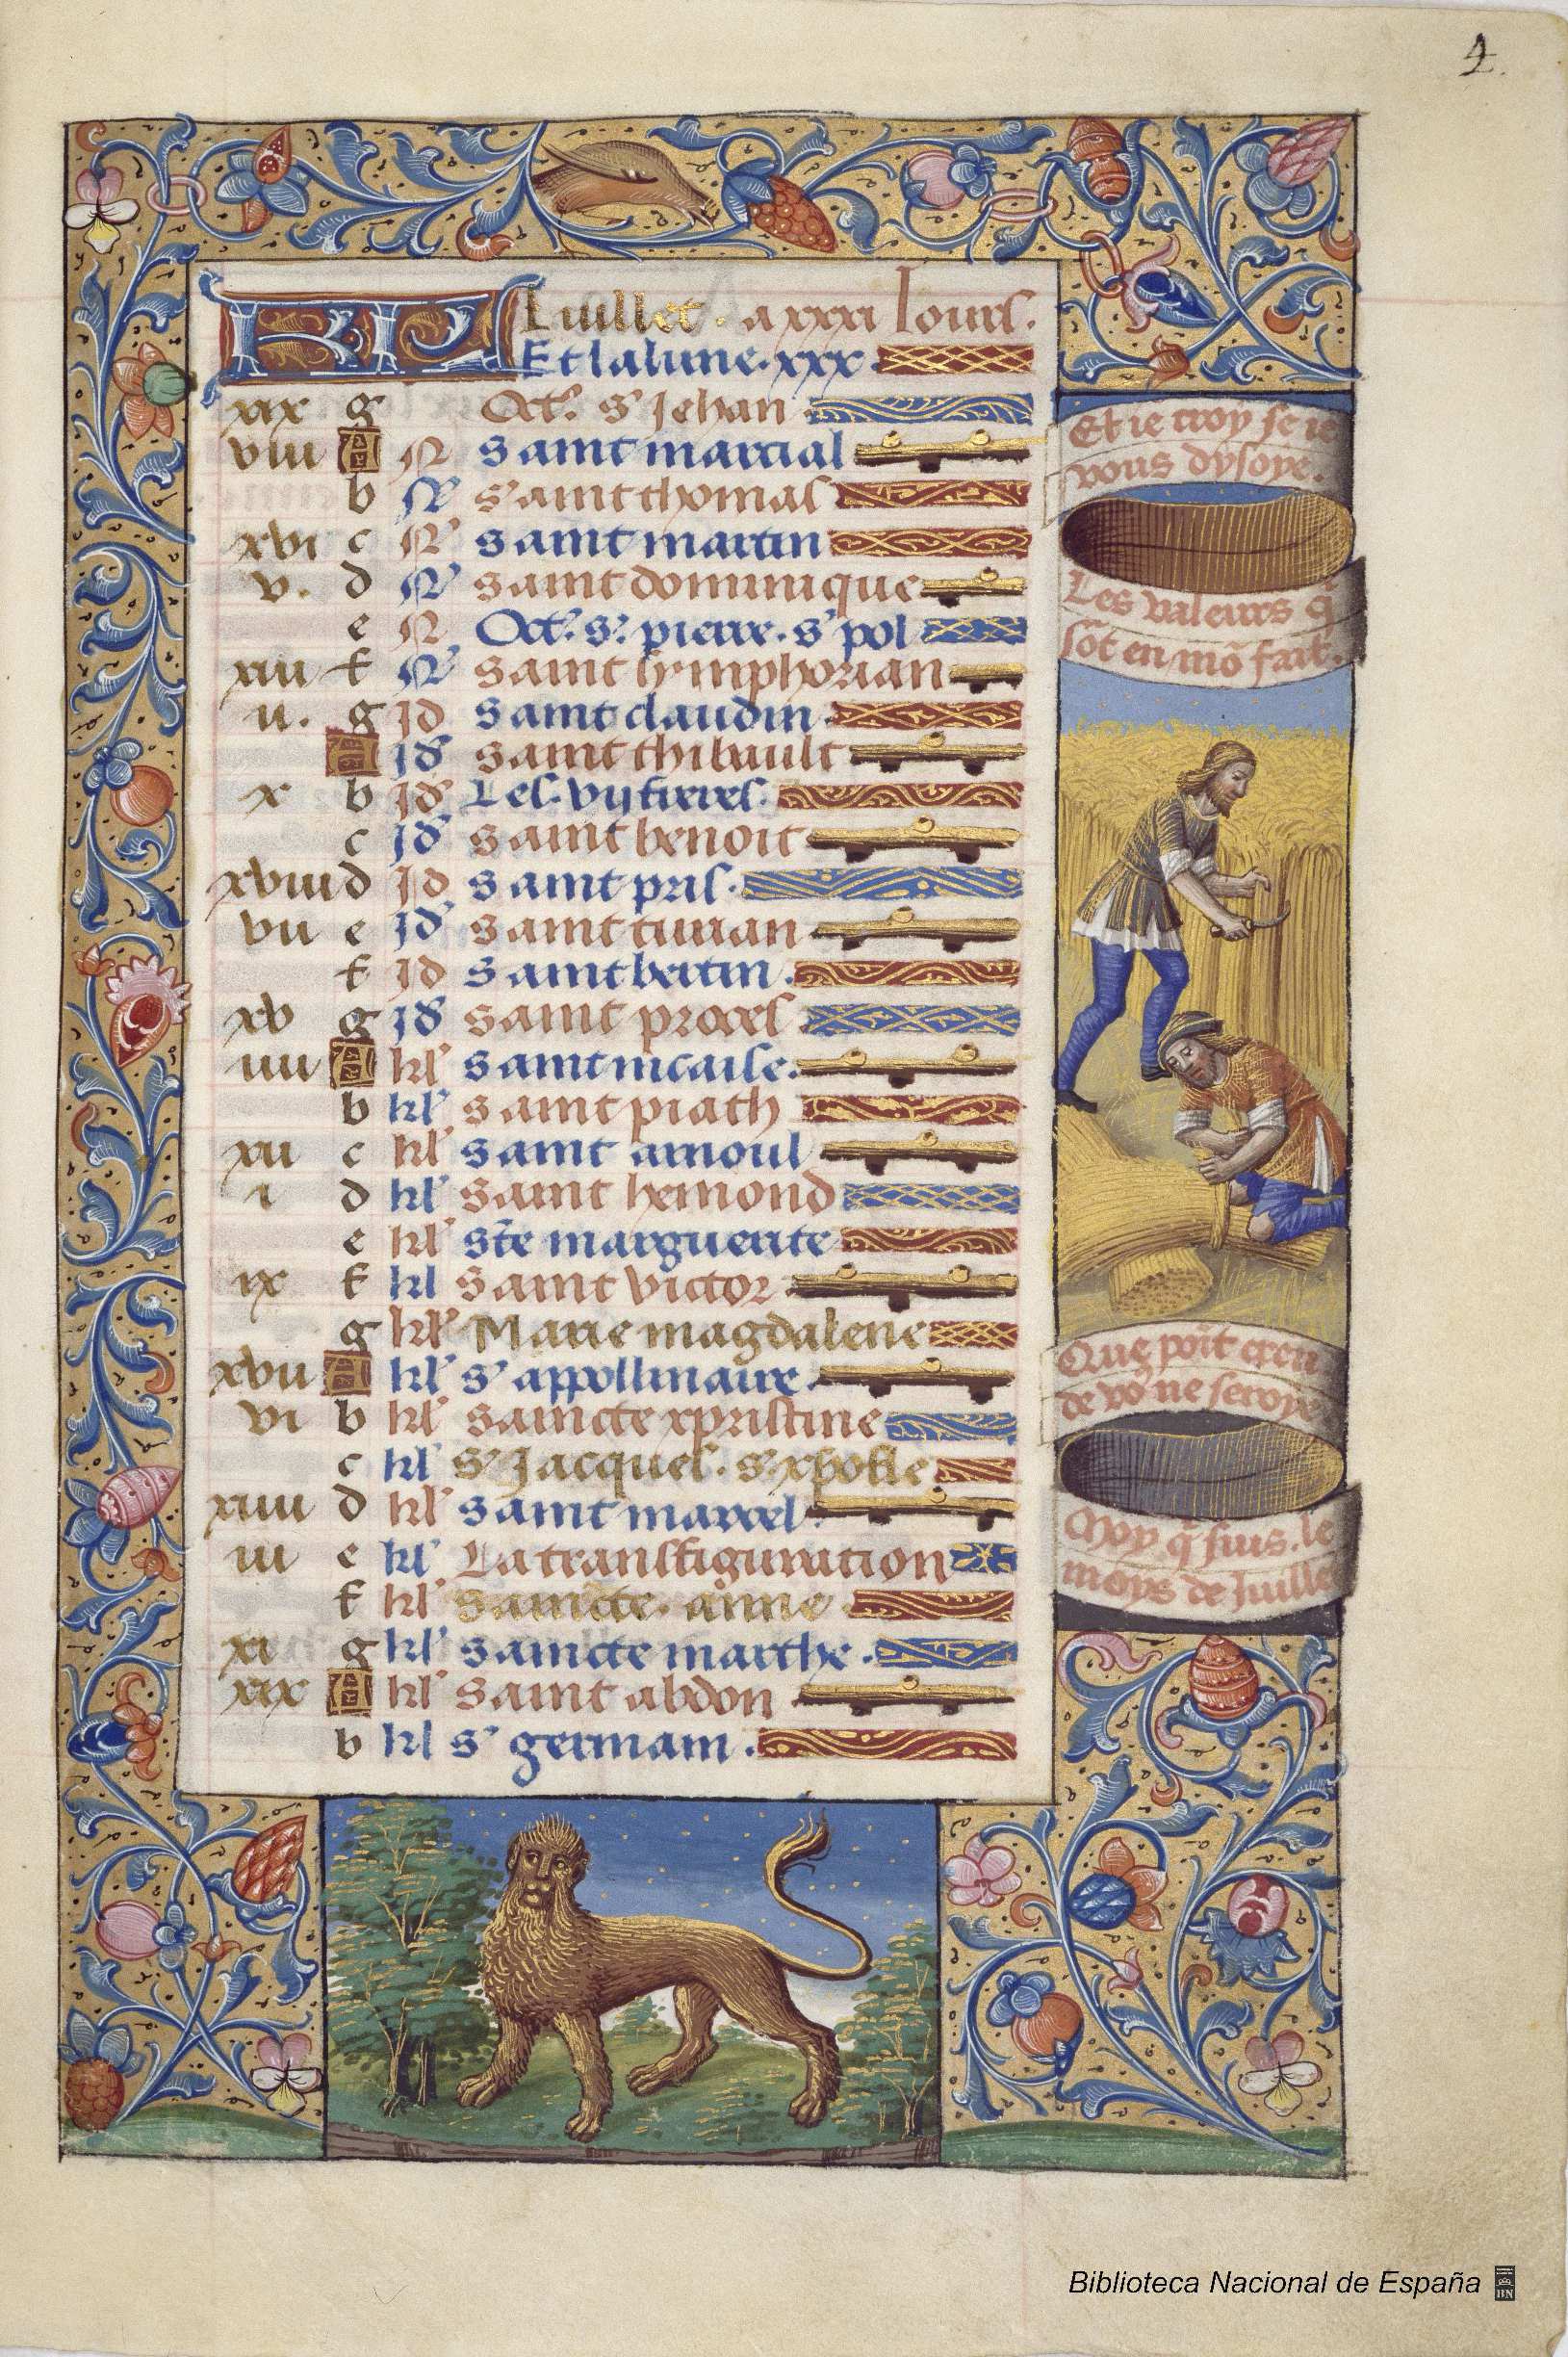 4.
KL Iuillet. a xxxi Iours.
Et la lune. xxx.
xix g Oct. s' Jehan
viii A N saint marcial
b N saint thomas
xvi c N saint martin
v. d N saint dominique
e N Oct. s'. pierre. s' pol
xiii f N saint symphorian
ii. g Id saint claudin
A Id saint thibault
x b Id Les. vij freres.
c Id saint benoit
xviii d Id saint pris.
vii e Id saint turian
f Id saint bertin.
xv g Id saint proces
iiii A kl' saint nicaise.
b kl' saint piath
xii c kl' saint arnoul
i d kl' saint hemond
e kl' ste marguerite
ix f kl saint victor
g kl' Marie magdalene
xvii A kl' s' appollinaire
vi b kl' saincte xpristine
c kl' s' Jacques. s. xpofle
xiiii d kl' saint marcel
iii e kl' La transfiguration
f kl' saincte. anne
xi g kl' saincte marthe.
xix A kl' saint abdon
b kl s' germain.
Et ie croy se ie
vous dysoye.
Les valeurs q̃
sõt en mõ fait.
Que poit creu
de vo' ne seroye
Moy q̃ suis. le
moys de Juille
Biblioteca Nacional de España
BN